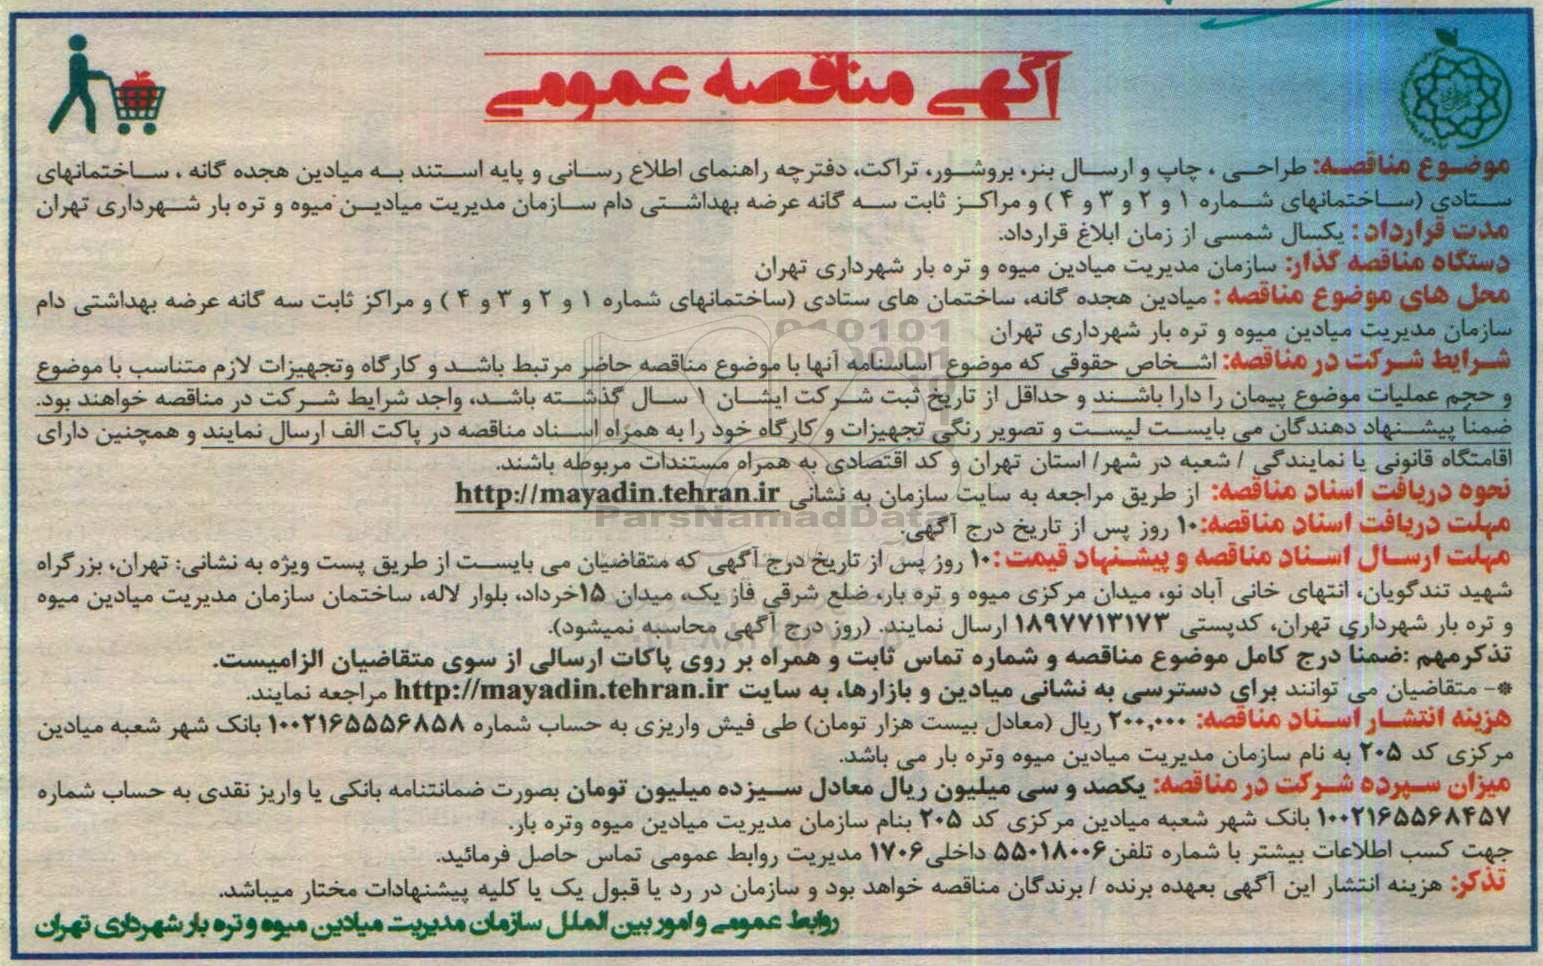 آگهی مناقصه عمومی
موضوع مناقصه: طراحی ، چاپ و ارسال بنر، بروشور، تراکت، دفترچه راهنمای اطلاع رسانی و پایه استند به میادین هجده گانه ، ساختمانهای
ستادی (ساختمانهای شماره ۱ و ۲ و ۳ و ۴ ) و مراکز ثابت سه گانه عرضه بهداشتی دام سازمان مدیریت میادین میوه و تره بار شهرداری تهران
مدت قرارداد : یکسال شمسی از زمان ابلاغ قرارداد.
دستگاه مناقصه گذار: سازمان مدیریت میادین میوه و تره بار شهرداری تهران
محل های موضوع مناقصه : میادین هجده گانه، ساختمان های ستادی (ساختمانهای شماره ۱ و ۲ و ۳ و ۴ ) و مراکز ثابت سه گانه عرضه بهداشتی دام
سازمان مدیریت میادین میوه و تره بار شهرداری تهران
شرایط شرکت در مناقصه: اشخاص حقوقی که موضوع اساسنامه آنها با موضوع مناقصه حاضر مرتبط باشد و کارگاه وتجهیزات لازم متناسب با موضوع
و حجم عملیات موضوع پیمان را دارا باشند و حداقل از تاریخ ثبت شرکت ایشان ۱ سال گذشته باشد، واجد شرایط شرکت در مناقصه خواهند بود.
ضمناً پیشنهاد دهندگان می بایست لیست و تصویر رنگی تجهیزات و کارگاه خود را به همراه اسناد مناقصه در پاکت الف ارسال نمایند و همچنین دارای
اقامتگاه قانونی یا نمایندگی / شعبه در شهر/ استان تهران و کد اقتصادی به همراه مستندات مربوطه باشند.
نحوه دریافت اسناد مناقصه: از طریق مراجعه به سایت سازمان به نشانی http://mayadin.tehran.ir
ParsNamadData
مهلت دریافت اسناد مناقصه: ۱۰ روز پس از تاریخ درج آگهی.
مهلت ارسال اسناد مناقصه و پیشنهاد قیمت : ۱۰ روز پس از تاریخ درج آگهی که متقاضیان می بایست از طریق پست ویژه به نشانی: تهران، بزرگراه
شهید تندگویان، انتهای خانی آباد نو، میدان مرکزی میوه و تره بار، ضلع شرقی فاز یک، میدان ۱۵خرداد، بلوار لاله، ساختمان سازمان مدیریت میادین میوه
و تره بار شهرداری تهران، کدپستی ۱۸۹۷۷۱۳۱۷۳ ارسال نمایند. (روز درج آگهی محاسبه نمیشود).
تذکرمهم :ضمناً درج کامل موضوع مناقصه و شماره تماس ثابت و همراه بر روی پاکات ارسالی از سوی متقاضیان الزامیست.
*- متقاضیان می توانند برای دسترسی به نشانی میادین و بازارها، به سایت http://mayadin.tehran.ir مراجعه نمایند.
هزینه انتشار اسناد مناقصه: ۲۰۰,۰۰۰ ریال (معادل بیست هزار تومان) طی فیش واریزی به حساب شماره ۱۰۰۲۱۶۵۵۵۶۸۵۸ بانک شهر شعبه میادین
مرکزی کد ۲۰۵ به نام سازمان مدیریت میادین میوه وتره بار می باشد.
میزان سپرده شرکت در مناقصه: یکصد و سی میلیون ریال معادل سیزده میلیون تومان بصورت ضمانتنامه بانکی یا واریز نقدی به حساب شماره
۱۰۰۲۱۶۵۵۶۸۴۵۷ بانک شهر شعبه میادین مرکزی کد ۲۰۵ بنام سازمان مدیریت میادین میوه وتره بار.
جهت کسب اطلاعات بیشتر با شماره تلفن۵۵۰۱۸۰۰۶ داخلی۱۷۰۶ مدیریت روابط عمومی تماس حاصل فرمائید.
تذکر: هزینه انتشار این آگهی بعهده برنده / برندگان مناقصه خواهد بود و سازمان در رد یا قبول یک یا کلیه پیشنهادات مختار میباشد.
روابط عمومی و امور بین الملل سازمان مدیریت میادین میوه و تره بار شهرداری تهران